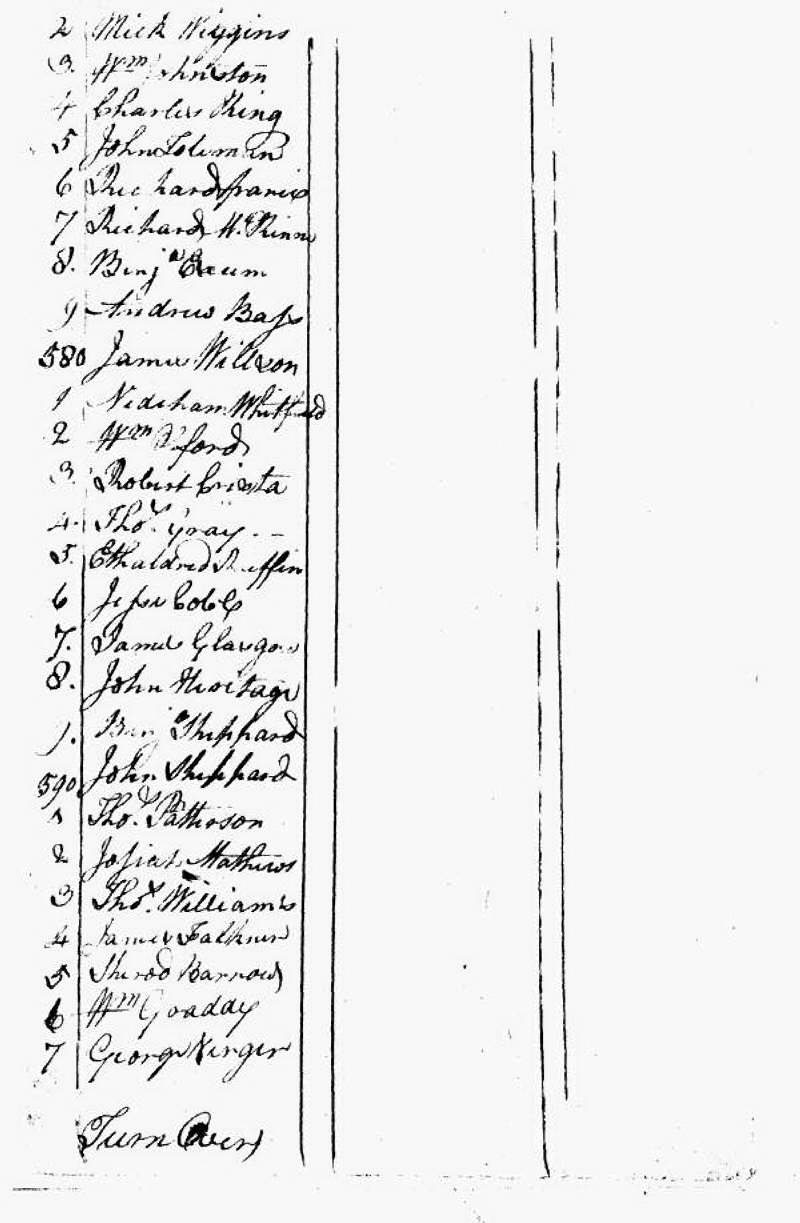 2 Mick Wiggins
3. Wm Johnston
4 Charles King
5 John Coleman
6 Richard franis
7 Richard McKinne
8. Benjn Exum
9 Andrew Bass
580 James Willson
1 Nedeham Whitfield
2 Wm ford
3. Robert
4. Thos. Gray. -
5. Ethaldred Ruffin
6 Jesse Cobb
7. James Glasgow
8. John Heritage
9. Benjn Sheppard
590 John Sheppard
1 Thos. Patterson
2 Josiah Mathews
3 Thos. Williams
4 James Falkner
5 Sherod Barrow
6 Wm Graddy
7 George
Turn Over